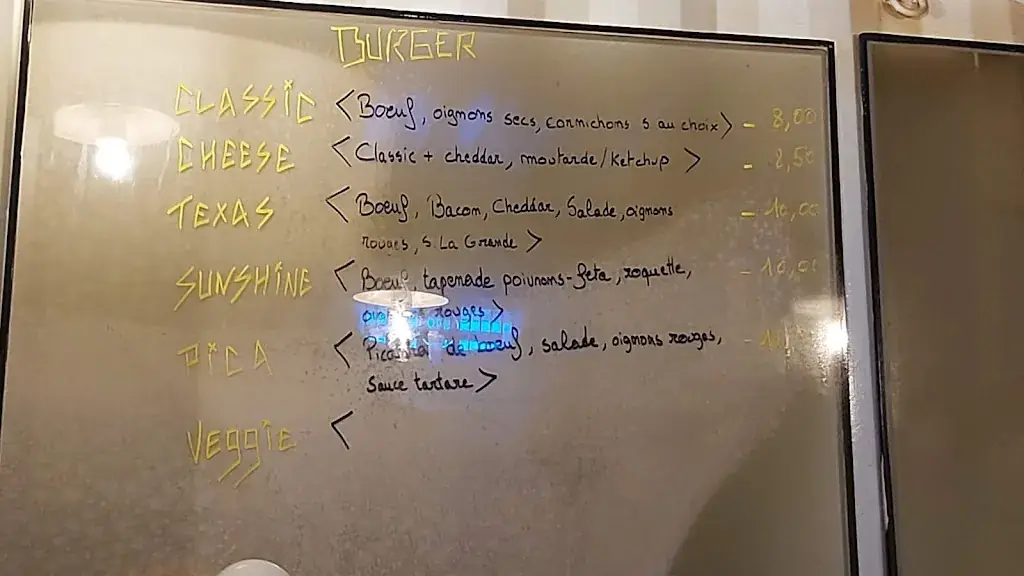 BURGER
CLASSIC < Boeuf, oignons secs, cornichons s au choix> - 8,00
CHEESE < Classic + cheddar, moutarde/Ketchup > - 8,50
TEXAS < Boeuf, Bacon, Cheddar, Salade, oignons - 10,00
rouges, s. La Grande >
SUNSHINE < Boeuf, tapenade poivrons-feta, roquette, - 10,00
rouges>
PICA < de boeuf, salade, oignons rouges, -
Sauce tartare >
Veggie <